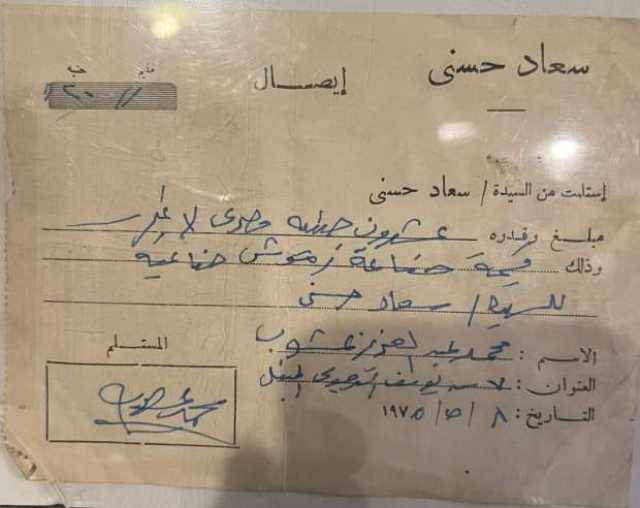 سعاد حسنى
إيصال
مليم جنيه
٢٠
إستلمت من السيدة / سعاد حسنى
مبلغ وقدره عشرون جنيه مصرى لا غير
وذلك قيمة صناعة رموش صناعية
للسيدة / سعاد حسنى
المستلم
الاسم : محمد عبد العزيز
العنوان : يوسف
التاريخ : ٨ / ٥ / ١٩٧٥
محمد